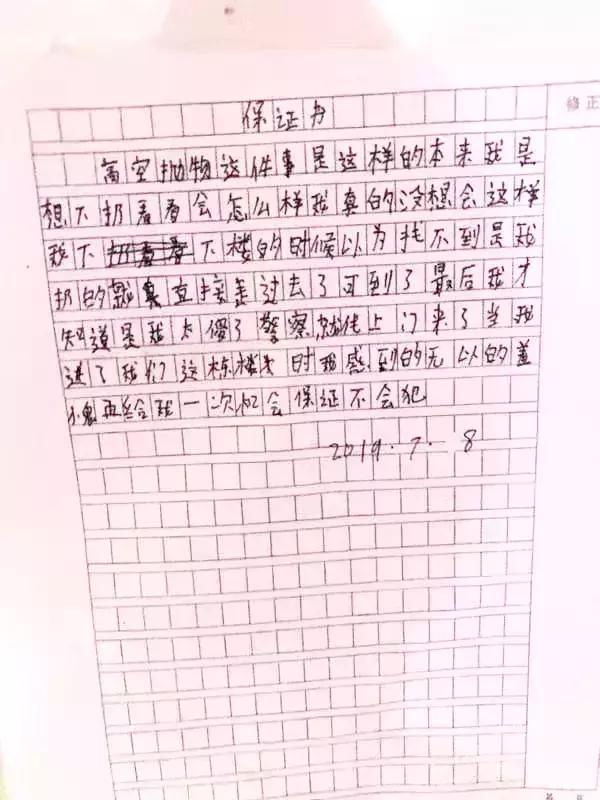 修正
保证书
高空抛物这件事是这样的本来我是
想下扔看看会怎么样我真的没想会这样
我下楼的时候以为找不到是我
扔的就直接走过去了可到了最后我才
知道是我太傻了警察就找上门来了当我
进了我们这栋楼时我感到的无以的羞
愧再给我一次机会保证不会犯
2019.7.8